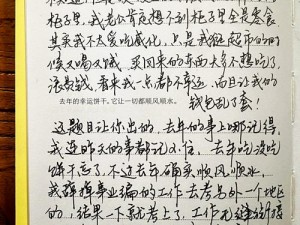 柜子里,我老公肯定想不到柜子里全是零食
其实我不太爱吃威化,只是我逛超市的时
候又喝又饿,买回来的东西大多不想吃了,
浪费钱,看来我一点都不幸运,而且让我的
去年的幸运饼干。它让一切都顺风顺水。
钱包乱了套!
这题目让你出的,去年的事上哪记得,
我连昨天的事都记不住,去年吃没吃
饼干忘了,不过去年确实顺风顺水,
我辞掉事业编的工作去考另外一个地区
的,结果一下就考上了,工作无缝衔接